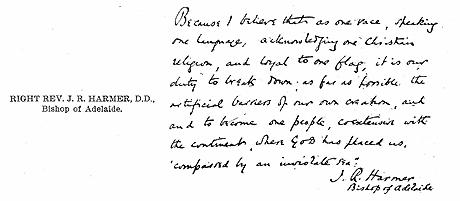 RIGHT REV. J. R. HARMER, D.D.,
Bishop of Adelaide.
Because I believe that as one race, speaking
one language, acknowledging one Christian
religion, and loyal to one flag, it is our
duty to break down as far as possible the
artificial barriers of our own creation, and
and to become one people, coextensive with
the continent, where God has placed us,
"compassed by an inviolate sea".
J. R. Harmer
Bishop of Adelaide